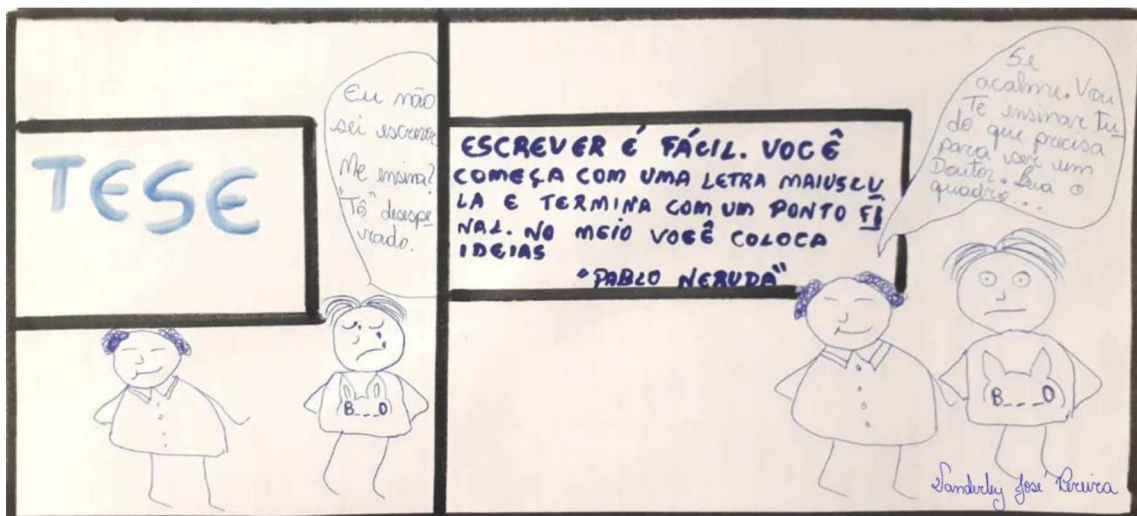 TESE
Eu não
sei escrever
Me ensina?
"Tô" desespe
rado.
B___O
ESCREVER É FÁCIL. VOCÊ
COMEÇA COM UMA LETRA MAIUSCU
LA E TERMINA COM UM PONTO FI
NAL. NO MEIO VOCÊ COLOCA
IDEIAS
"PABLO NERUDA"
Se
acalme. Vou
Te ensinar tu
do que precisa
para ser um
Doutor. Leia o
quadro...
B___O
Vanderley José Pereira